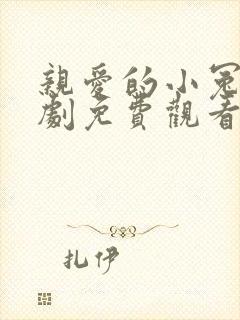 親愛的小冤
劇免費觀看
扎伊